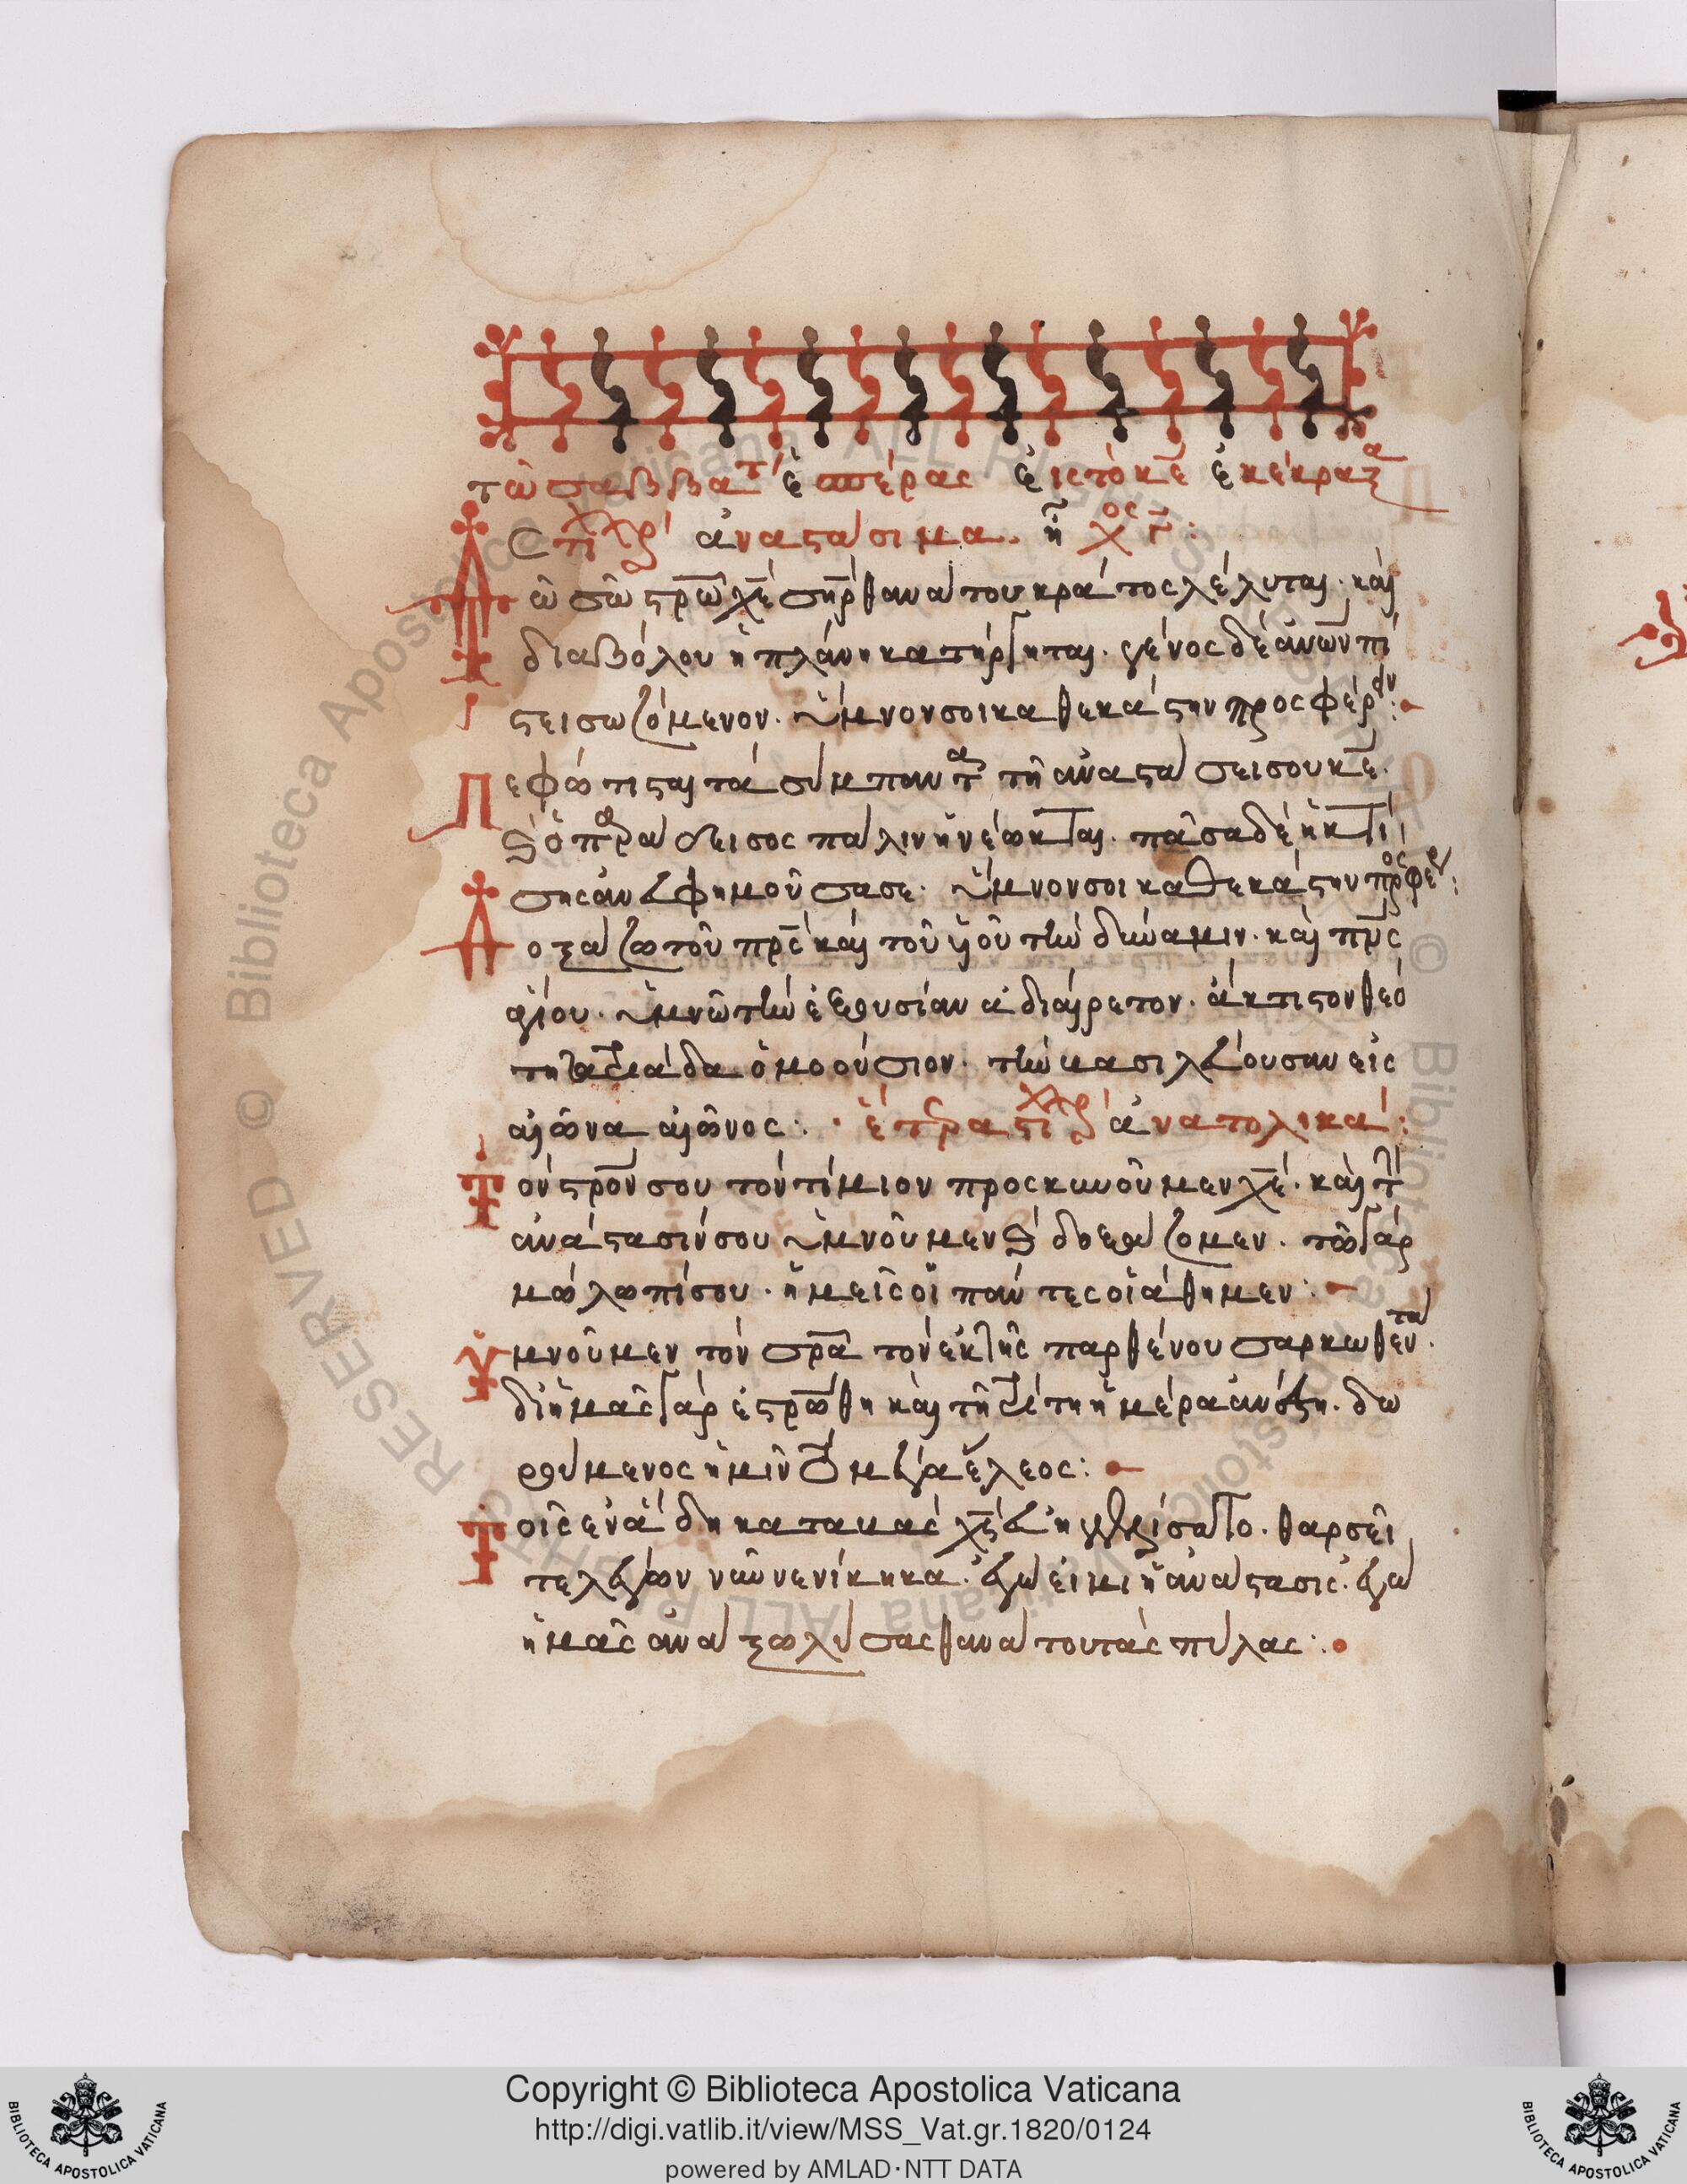 τῶ σαββάτ ἐσπέρας ἐις τὸ κε ἐκέκραξα
Στιχηρ ἀναστάσιμα. ἦχος γ:
Τῶ σῶ στρω χε σηρ θανάτου κράτος λέλυται. καὶ
διαβόλου ἡ πλάνη κατήργηται. γένος δὲ ἀνων πί
στει σωζόμενον. ὕμνον σοι καθεκάστην προσφέρει:
Πεφώτισται τὰ σύμπαντα τῆ ἀναστάσει σου κε.
κ ὁ παράδεισος πάλιν ἠνέωκται. πᾶσα δὲ ἡ κτί
σης ἀνευφημοῦσα σε. ὕμνον σοι καθεκάστην προσφέρ:
Δοξάζω τοῦ πρς καὶ τοῦ υἱοῦ τὴν δύναμιν. καὶ πνς
ἁγίου. ὑμνῶ τὴν ἐξουσίαν ἀδιαίρετον. ἄκτιστον θεό
τητα τριάδα ὁμοούσιον. τὴν βασιλεύουσαν εἰς
αἰῶνα αἰῶνος: ἕτερα στιχηρ ἀνατολικά:
Τὸν στρον σου τὸν τίμιον προσκυνοῦμεν χε. καὶ τὴν
ἀνάστασίν σου ὑμνοῦμεν κ δοξάζομεν. τῶ γὰρ
μώλωπί σου. ἡμεῖς οἱ πάντες οἰάθημεν:
Ὑμνοῦμεν τὸν σρα τὸν ἐκ τῆς παρθένου σαρκωθέντα.
δι ἡμᾶς γὰρ ἐστρώθη καὶ τῆ τρίτη ἡμέρα ἀνέστη. δω
ρούμενος ἡμῖν τὸ μέγα ἔλεος:
Τοῖς ἐν ἅδη καταβὰς χς εὐηγγελίσατο. θαρσεῖ
τε λέγων νῦν νενίκηκα. ἐγώ εἰμι ἡ ἀνάστασις. ἐγὼ
ἡμᾶς ἀνάξω λύσας θανάτου τὰς πύλας:
© Biblioteca Apostolica Vaticana ALL RIGHTS RESERVED
Copyright © Biblioteca Apostolica Vaticana
http://digi.vatlib.it/view/MSS_Vat.gr.1820/0124
powered by AMLAD·NTT DATA
BIBLIOTECA APOSTOLICA VATICANA
BIBLIOTECA APOSTOLICA VATICANA